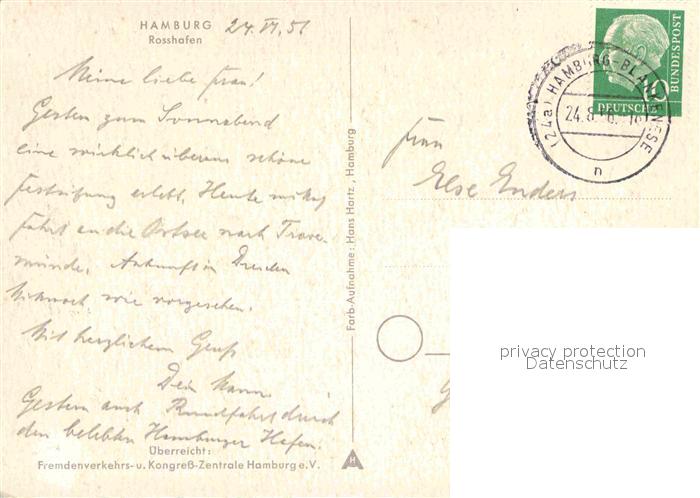 HAMBURG
Rosshafen
Meine liebe Frau!
Gestern zum Sonnabend
eine wirklich überaus schöne
erlebt. Heute
fahrt an die Ostsee nach Trave-
münde. Ankunft in Dresden
Mittwoch wie vorgesehen.
Mit herzlichem Gruß
Dein Mann
Gestern auch Rundfahrt durch
den belebten Hamburger Hafen.
Überreicht:
Fremdenverkehrs- u. Kongreß-Zentrale Hamburg e.V.
Farb-Aufnahme: Hans Hartz, Hamburg
H
DEUTSCHE
BUNDESPOST
10
(24a) HAMBURG-BLANKENESE
n
Frau
Else Enders
privacy protection
Datenschutz